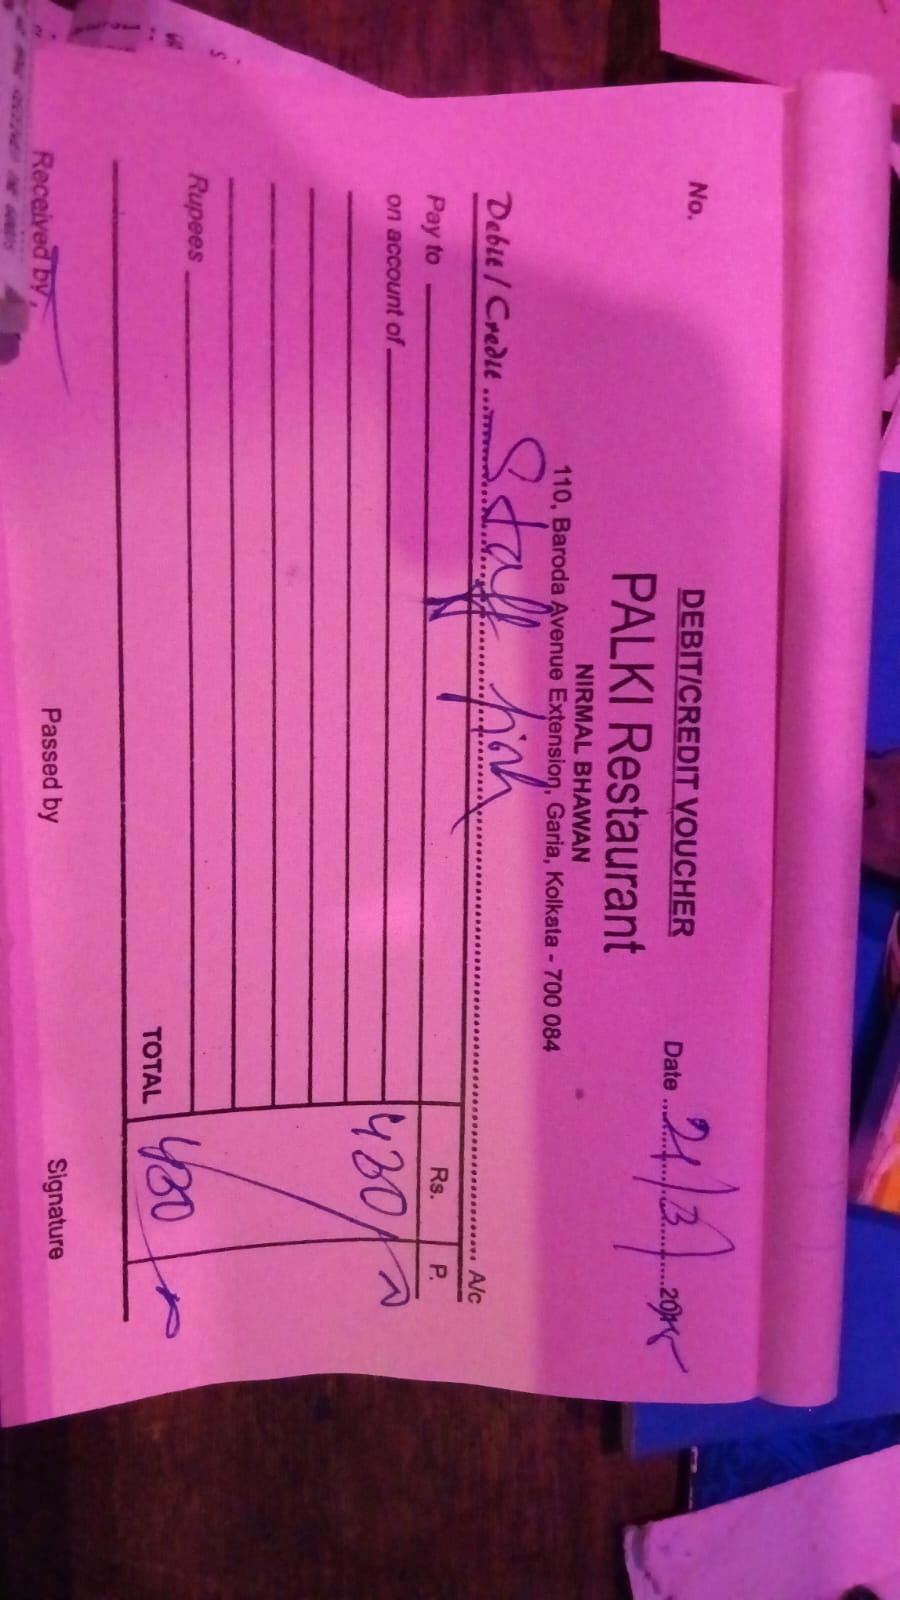 DEBIT/CREDIT VOUCHER
No.
PALKI Restaurant
Date 21/3/
NIRMAL BHAWAN
110, Baroda Avenue Extension, Garia, Kolkata - 700 084
Debit / Credit Staff fish A/c
Pay to Rs. P.
on account of 430/-
Rupees
TOTAL 430
Received by, Passed by Signature